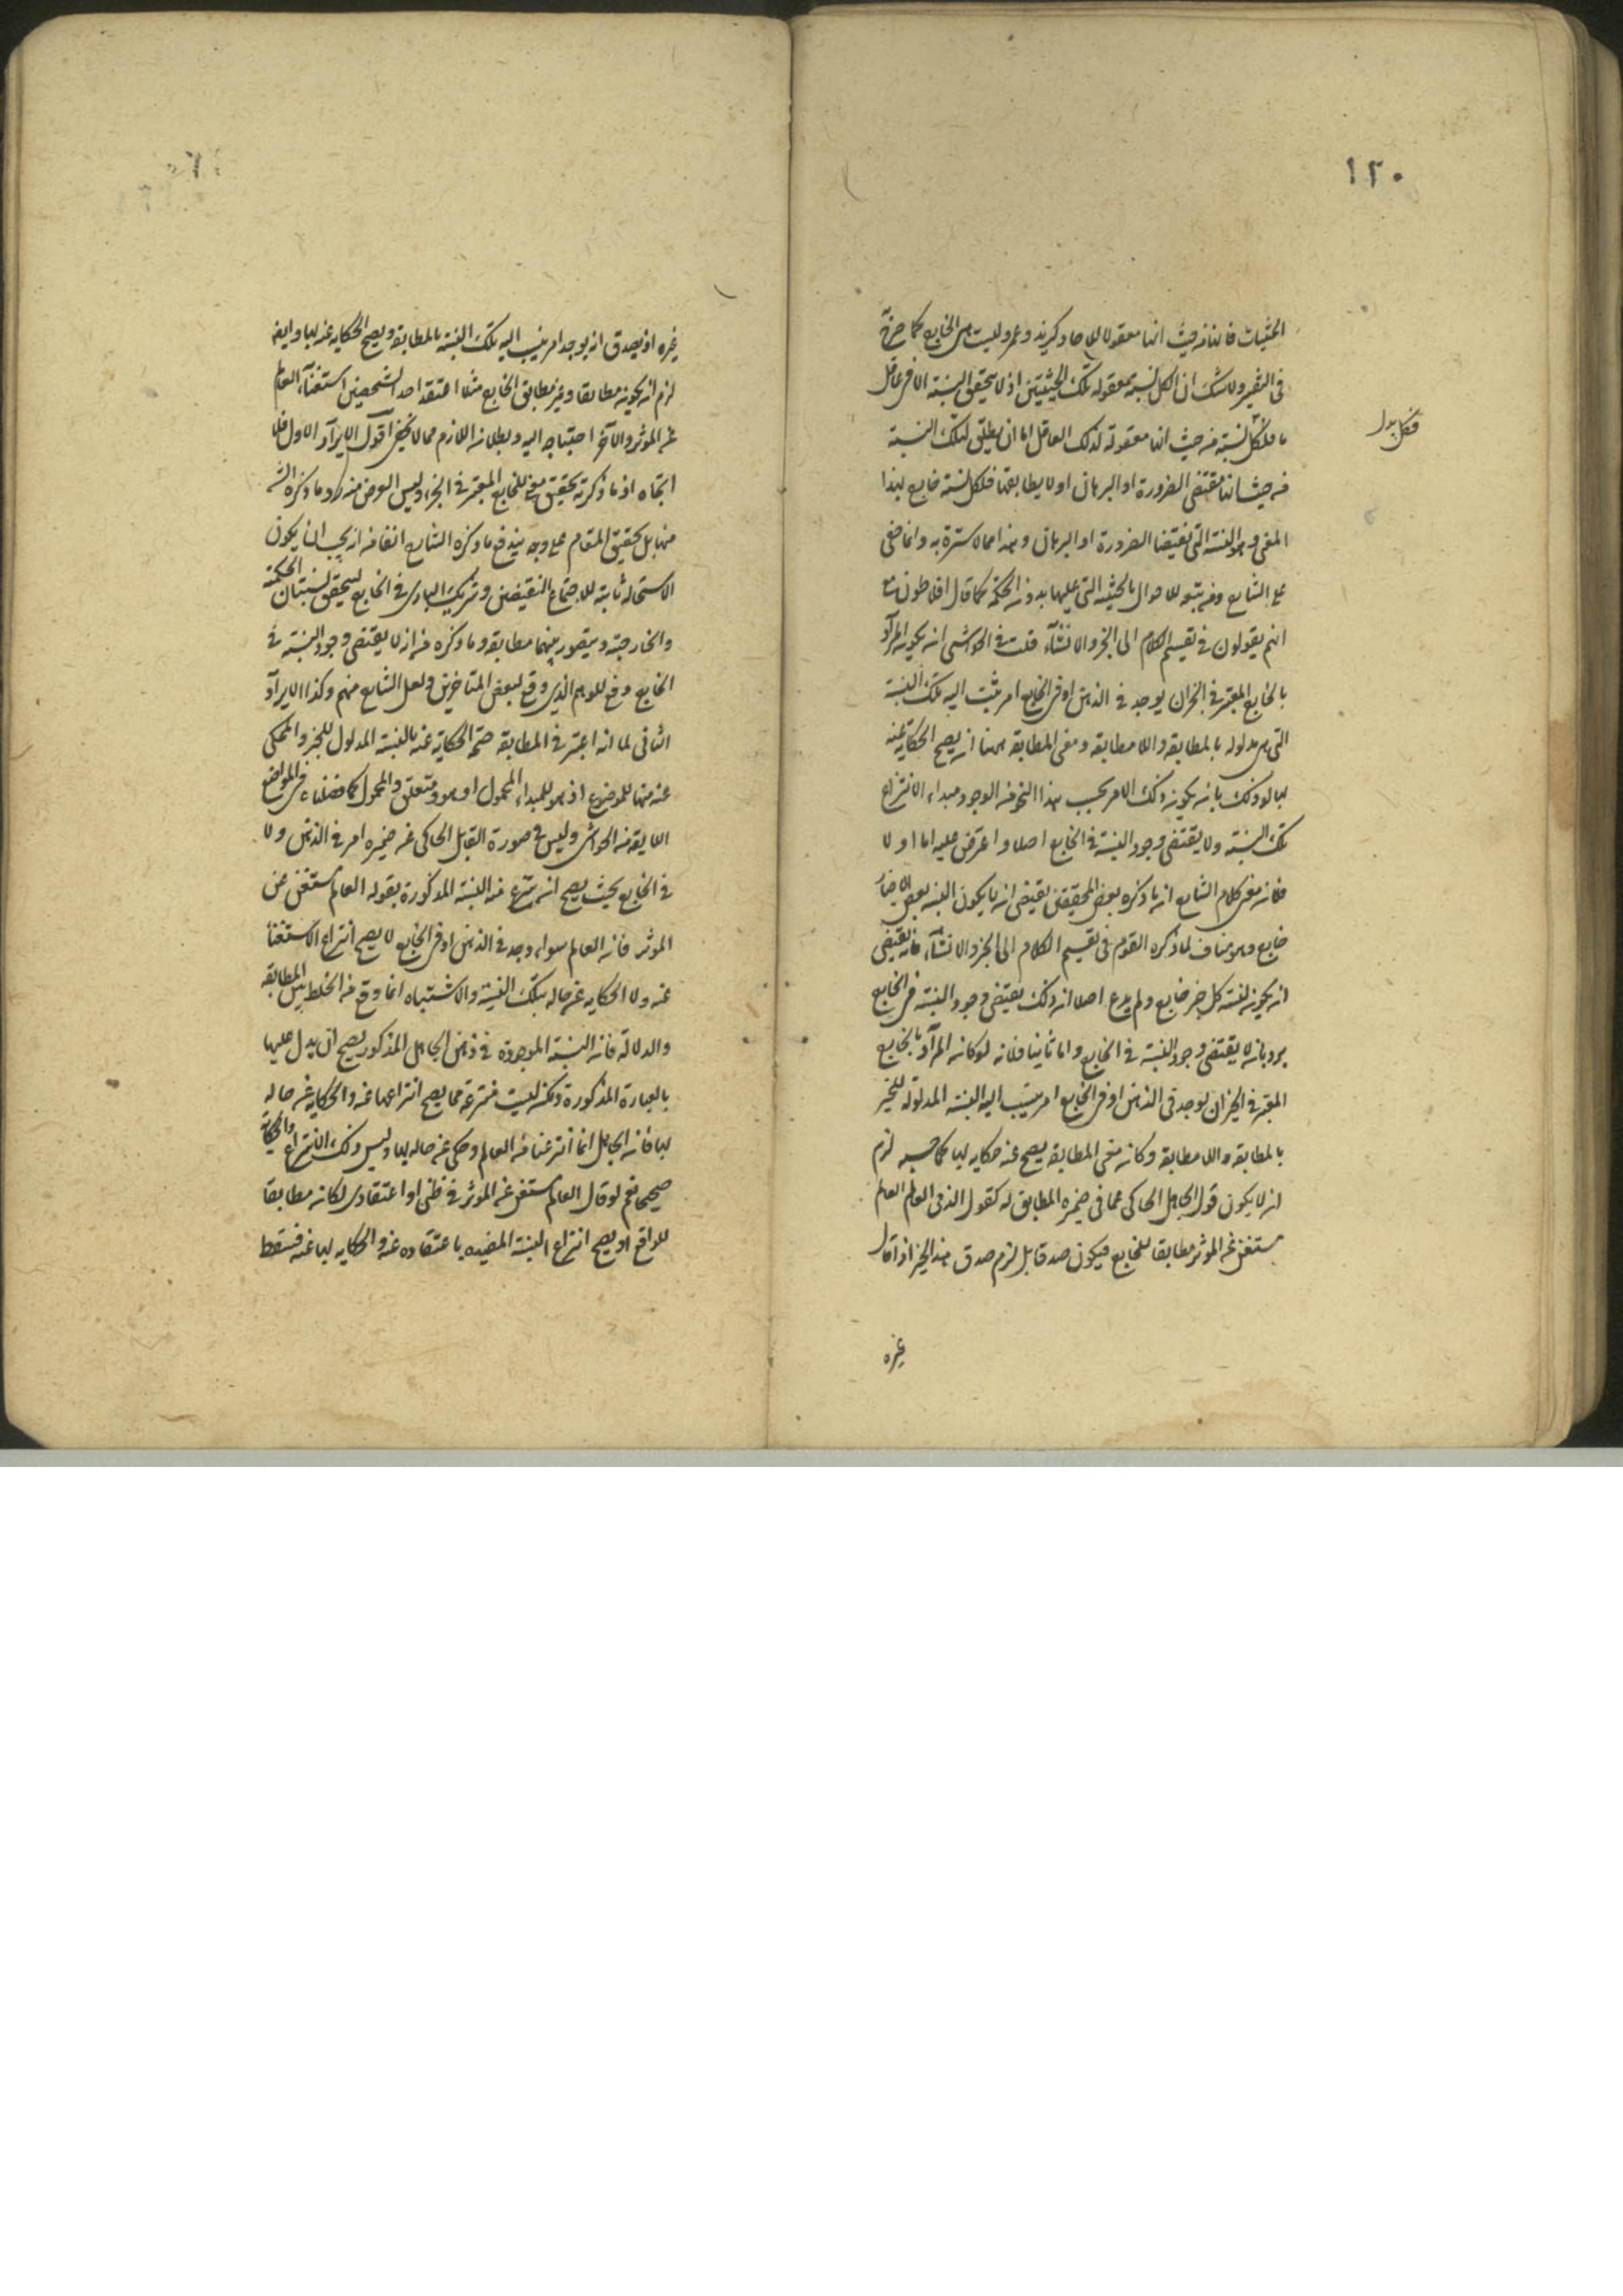 ١٢٠
الحيثيات فانها من حيث انها معقولة للاحاد كزيد وعمرو ليست هى الخارج كما صرح
فى التفسير ولا شك ان الكل نسبة معقولة تلك الحيثيتين اذ لا يتحقق النسبة الا فى عاقل
ما فلكل نسبة من حيث انها معقولة لذلك العاقل اما ان يطابق لتلك النسبة
من حيث انها مقتضى الضرورة او البرهان او لا يطابقها فلكل نسبة خارج بهذا
المعنى وهو النسبة التى تقتضيها الضرورة او البرهان وهذا مما لا سترة به وانما خفى
على الشارح ومن يتبعه للاحوال بالحيثية التى عليها بدون الحكمة كما قال افلاطون مع
انهم يقولون فى تقسيم الكلام الى الخبر والانشاء قلت فى الحواشى انه يكون المراد
بالخارج المعتبر فى الخبر ان يوجد فى الذهن او فى الخارج امر يثبت اليه تلك النسبة
التى هى مدلوله بالمطابقة واللا مطابقة ومعنى المطابقة ههنا ان يصح الحكاية عنه
بها لو ذلك بان يكون ذلك الامر بحسب هذا النحو من الوجود مبداء الانتزاع
تلك النسبة ولا يقتضى وجود النسبة فى الخارج اصلا واعترض عليه اما اولا
فلانه معنى كلام الشارح ان ما ذكره بعض المحققين يقتضى ان لا يكون النسبة بعض الاخبار
خارج وهو مناف لما ذكره القوم فى تقسيم الكلام الى الخبر والانشاء، فانه يقتضى
ان يكون لنسبة كل خبر خارج ولم يدع اصلا ان ذلك يقتضى وجود النسبة فى الخارج
يرد بانه لا يقتضى وجود النسبة فى الخارج واما ثانيا فلانه لو كان المراد بالخارج
المعتبر فى الخبر ان يوجد فى الذهن او فى الخارج امر ينسب اليه النسبة المدلولة للخبر
بالمطابقة واللا مطابقة وكان معنى المطابقة يصح عنه حكايه بها كما حسبه لزم
ان لا يكون قول الجاهل الحاكى عما فى ضميره المطابق له كقول الذى العالم العالم
مستغن عن المؤثر مطابقا للخارج فيكون صدقا بل لزم صدق هذا الخبر اذا قال
غيره
غيره اذ يصدق انه يوجد امر ينسب اليه تلك النسبة بالمطابقة ويصح الحكاية عنه بها وايضا
لزم ان يكون مطابقا وغير مطابق للخارج مثلا اعتقد احد الشخصين استغناء العالم
عن المؤثر والآخر احتياجه اليه وبطلان اللازم مما لا يخفى اقول الايراد الاول فلا
اتجاه اذ ما ذكرته تحقيق معنى الخارج المعتبر فى الخبر، وليس الغرض منه رد ما ذكره الشارح
منها بل تحقيق المقام على وجه يندفع ما ذكره الشارح آنفا من انه يجب ان يكون
الاستحالة ثابتة للاجتماع النقيضين وشريك البارى فى الخارج ليتحقق نسبتان الحكمية
والخارجية ويتصور بينهما مطابقة وما ذكره من انه لا يقتضى وجود النسبة فى
الخارج دفع للوهم الذى وقع لبعض المتاخرين ولعل الشارح منهم وكذا الايراد
الثانى لما انه اعتبر فى المطابقة صحة الحكاية عنه بالنسبة المدلول للخبر والمحكى
عنه منها للموضوع اذ هو للمبداء المحمول او هو ومتعلق والمحمول كما فصلناه فى المواضع
اللايقة من الحواشى وليس فى صورة القايل الحاكى عن ضميره امر فى الذهن ولا
فى الخارج بحيث يصح انه ينتزع منه النسبة المذكورة بقوله العالم مستغن عن
المؤثر فانه العالم سواء وجد فى الذهن او فى الخارج لا يصح انتزاع الاستغناء
عنه ولا الحكاية عن حاله بتلك النسبة والاشتباه انما وقع من الخلط بين المطابقة
والدلالة فانه النسبة الموجودة فى ذهن الجاهل المذكور يصح ان يدل عليها
بالعبارة المذكورة ولكنه ليست منتزعة مما يصح انتزاعها عنه والحكاية عن حاله
بها فانه الجاهل انما انتزعها من العالم وحكى عن حاله بها وليس ذلك الانتزاع والحكاية
صحيحا نعم لو قال العالم مستغن عن المؤثر فى ظنى او اعتقادى لكان مطابقا
للواقع اذ يصح انتزاع النسبة المفيدة باعتقاده عنه والحكاية بها عنه فسقط